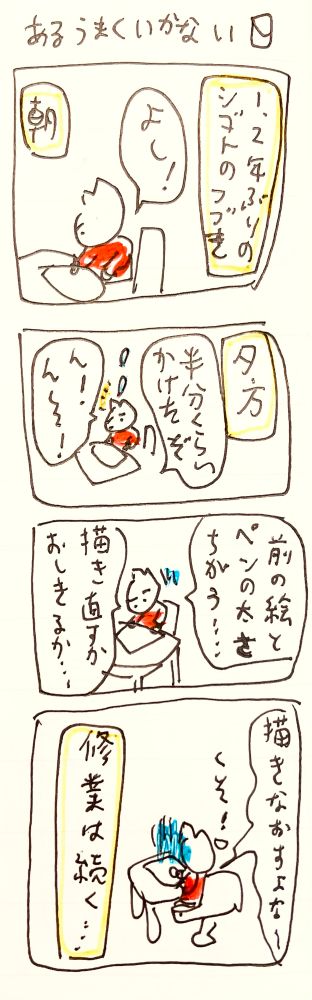 あるうまくいかない日
1、2年ぶりの
シゴトのつづき
朝
よし!
夕方
半分くらい
かけたぞ
ん!
んそ!
前の絵と
ペンの太さ
ちがう…
描き直すか
おしきるか…
描きなおすよな〜
くそ!
修業は続く…